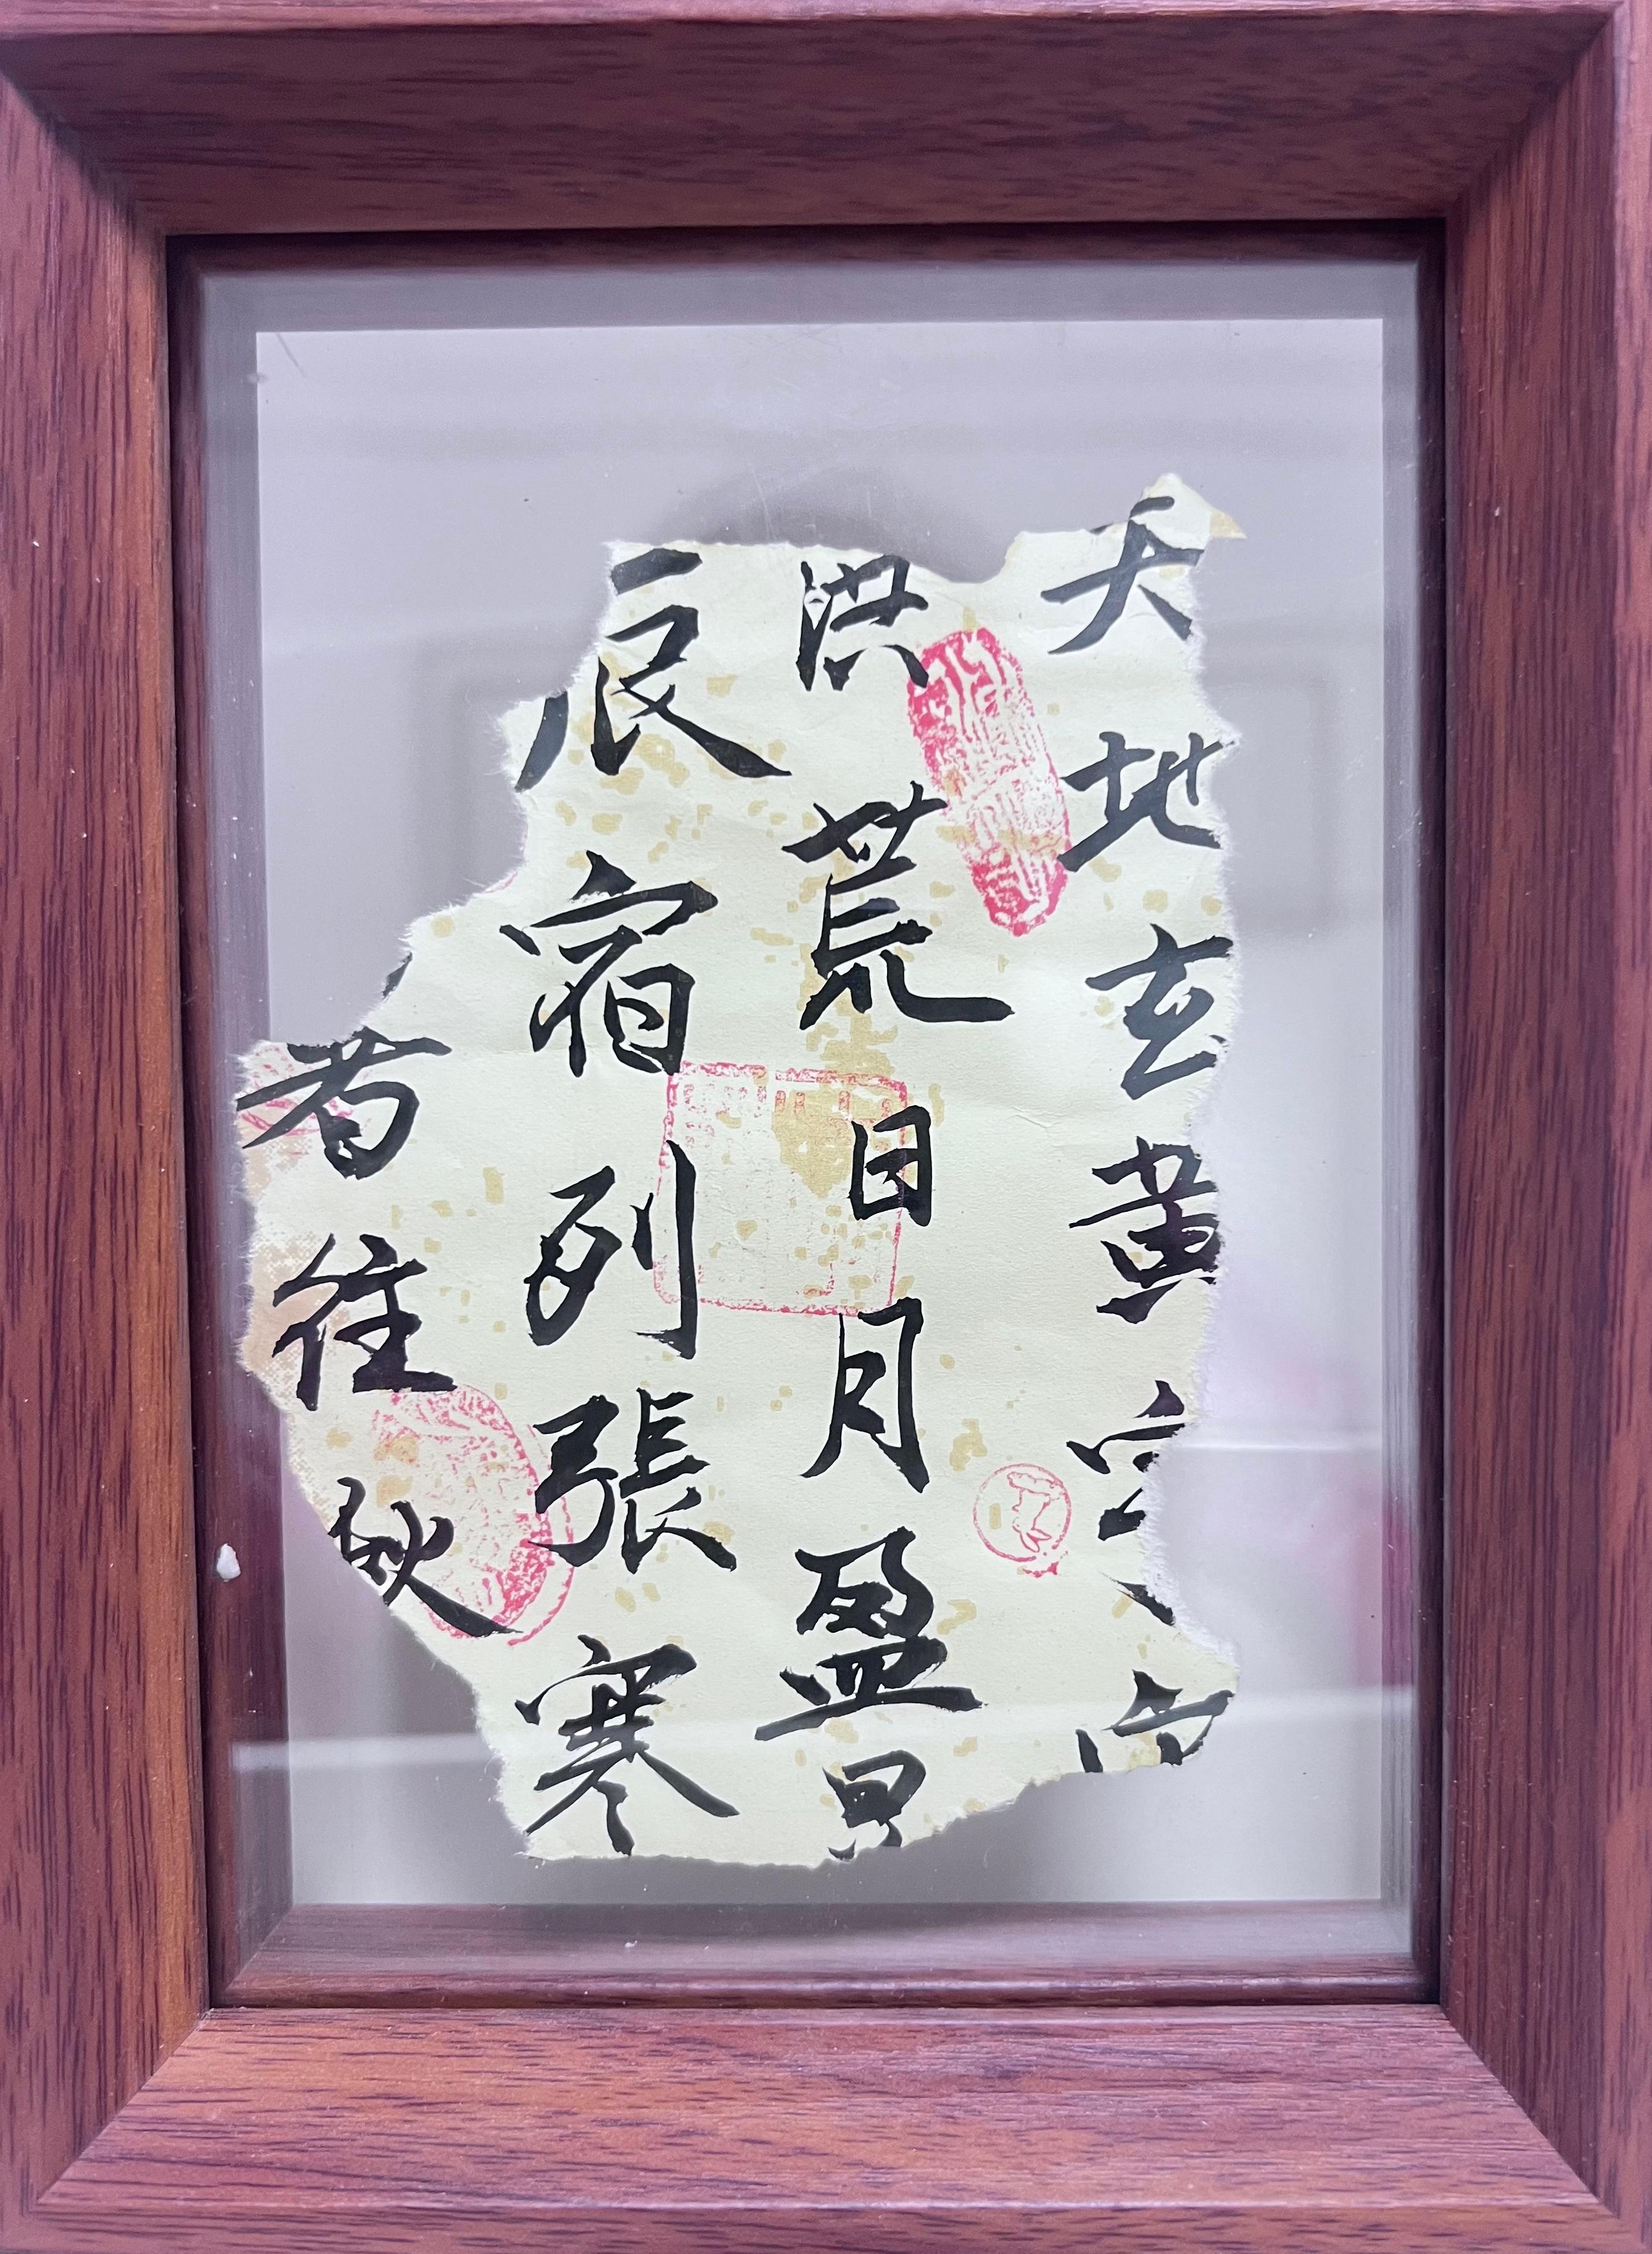 天地玄黄
洪荒日月盈
辰宿列張寒
暑往秋